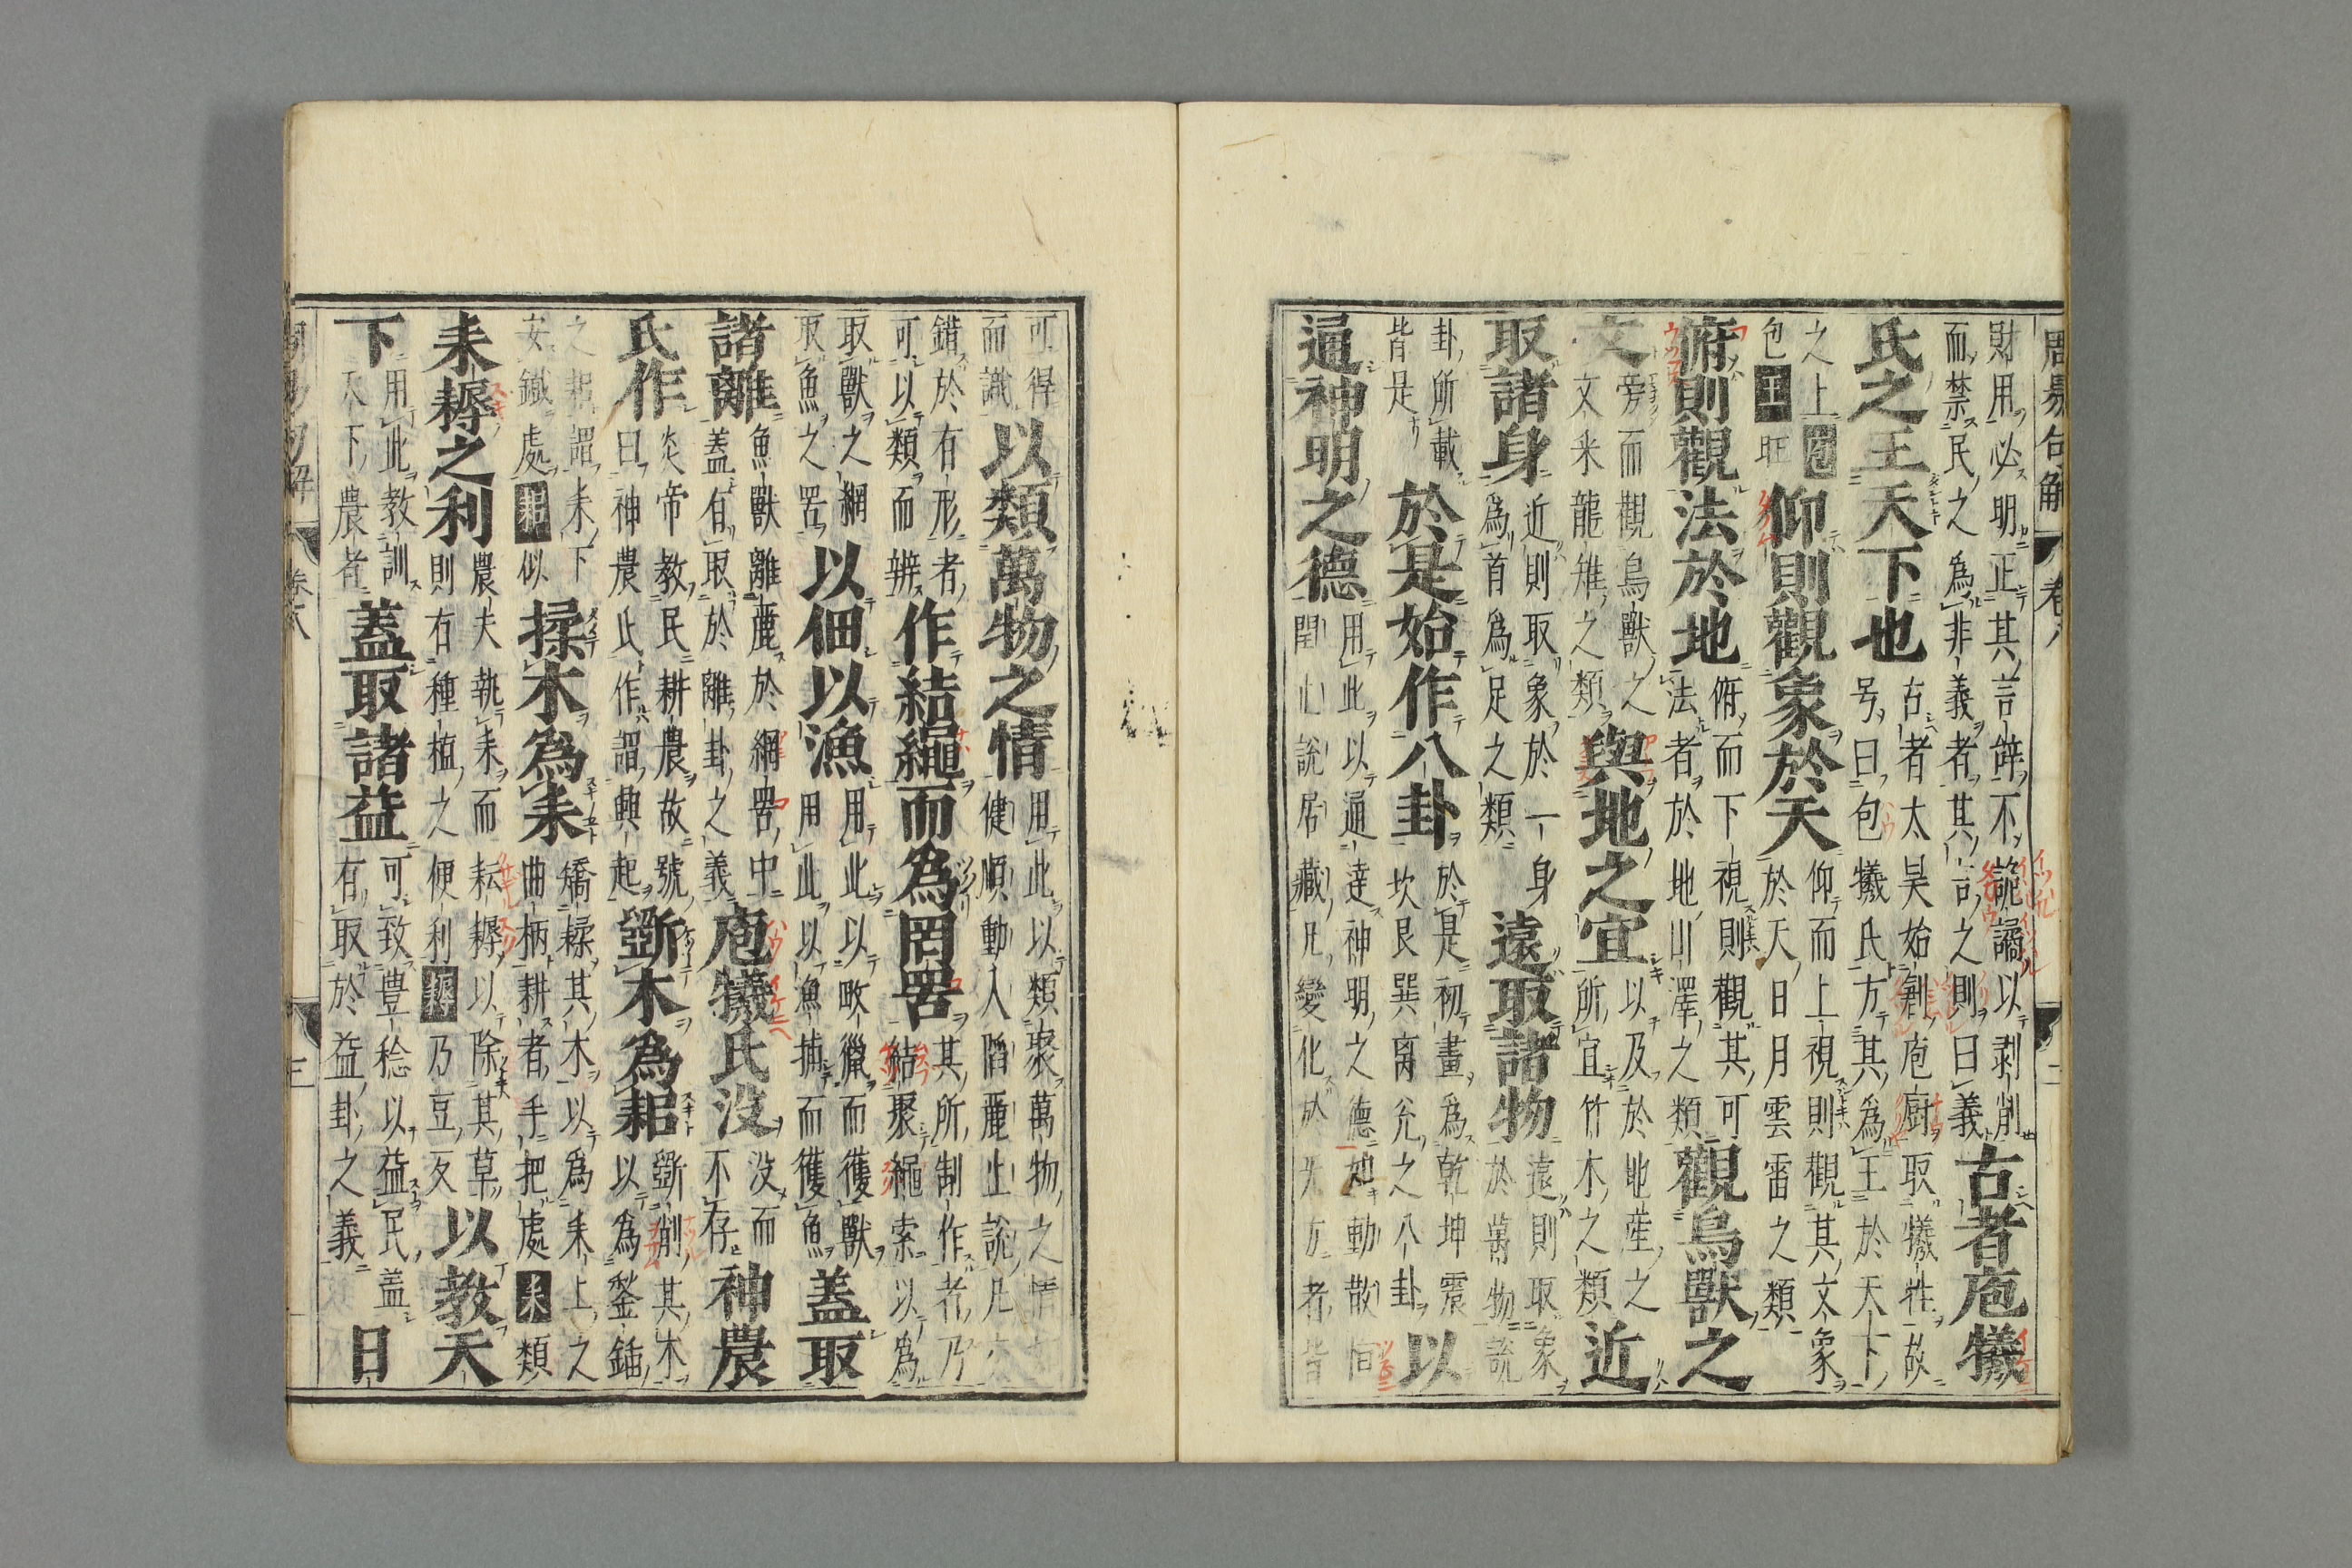 周易句解 卷八 二
財用必明正其言辭不詭譎以剥削
而禁民之為非義者其言之則曰義古者庖犧
氏之王天下也古者太昊始剥庖廚取犧牲故
号曰包犧氏方其為王於天下
之上庖
包王旺仰則觀象於天仰而上視則觀其文象
於天日月雲雷之類
俯則觀法於地俯而下視則觀其可
法者於地山澤之類觀鳥獸之
文旁而觀鳥獸之
文采龍雉之類與地之宜以及於地産之
所宜竹木之類近
取諸身近則取象於一身
為首為足之類遠取諸物遠則取象
於萬物說
卦所載
皆是於是始作八卦於是初畫為乾坤震
坎艮巽离兊之八卦以
通神明之德用此以通達神明之德如動散
止說居藏凡變化於者皆
可得
而識以類萬物之情用此以類聚萬物之情
健順動入陷麗止說凡
錯於有形者
可以類而辨作結繩而為罔罟其所制作者乃
結聚繩索以為
取獸之網
取魚之罟以佃以漁用此以畋獵而獲獸
用此以漁捕而獲魚蓋取
諸離魚獸離麗於網罟中
蓋有取於離卦之義庖犧氏沒沒而
不存神農
氏作炎帝教民耕農故號
曰神農此作謂興起斵木為耜斵削其木
以為鍫鍤
之耜謂耒下
安鐵處耜似揉木為耒矯輮其木以為耒上之
曲柄耕者手把處耒類
耒耨之利農夫執耒而耘耨以除其草
則有種植之便利耨乃豆反以教天
下用此教訓
天下農者蓋取諸益可致豊稔以益民蓋
有取於益卦之義日
周易句解 卷八 三